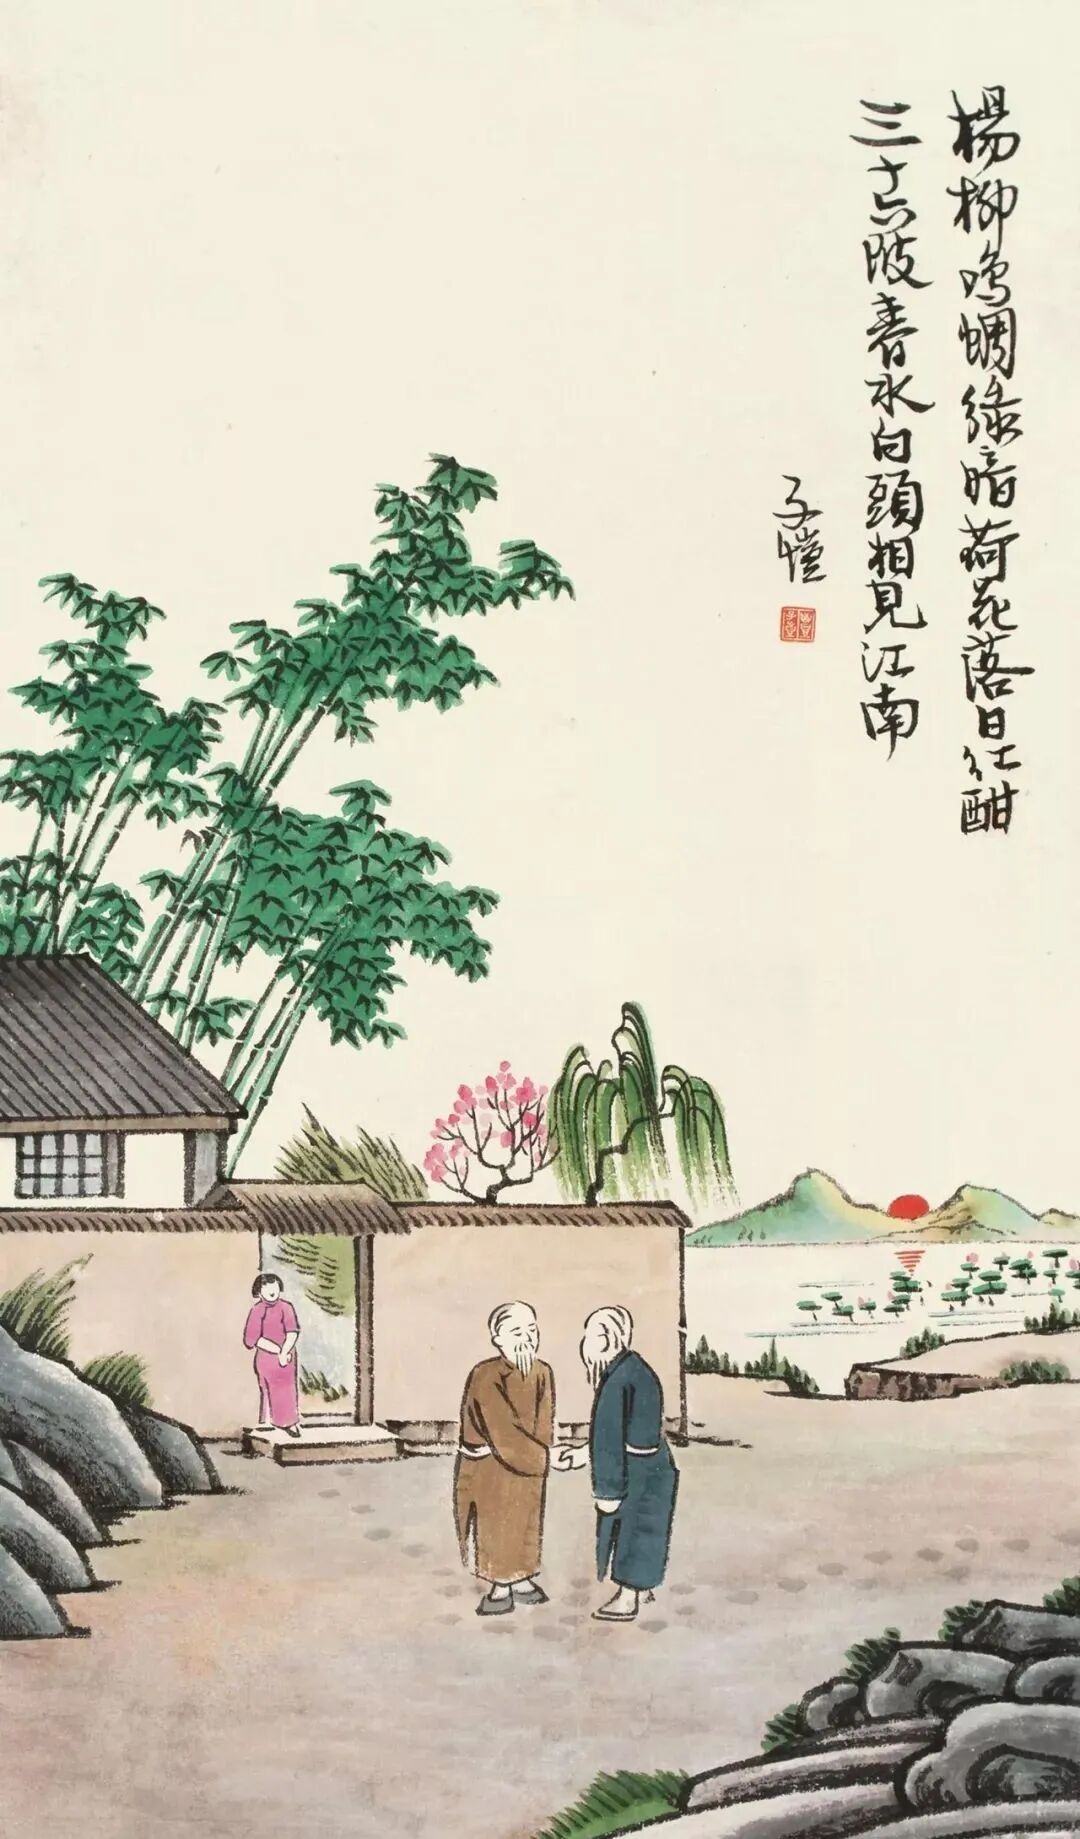 楊柳鳴蜩綠暗荷花落日红酣
三十六陂春水白頭相見江南
子愷